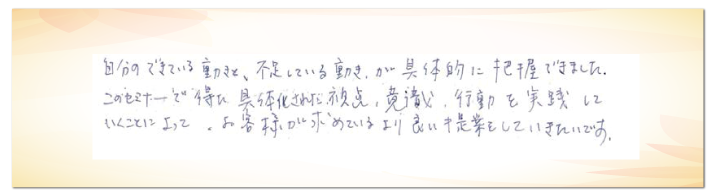 自分のできている動きと、不足している動き、が具体的に把握できました。
このセミナーで得た具体化された視点、意識、行動を実践して
いくことによって、お客様が求めているより良い提案をしていきたいです。